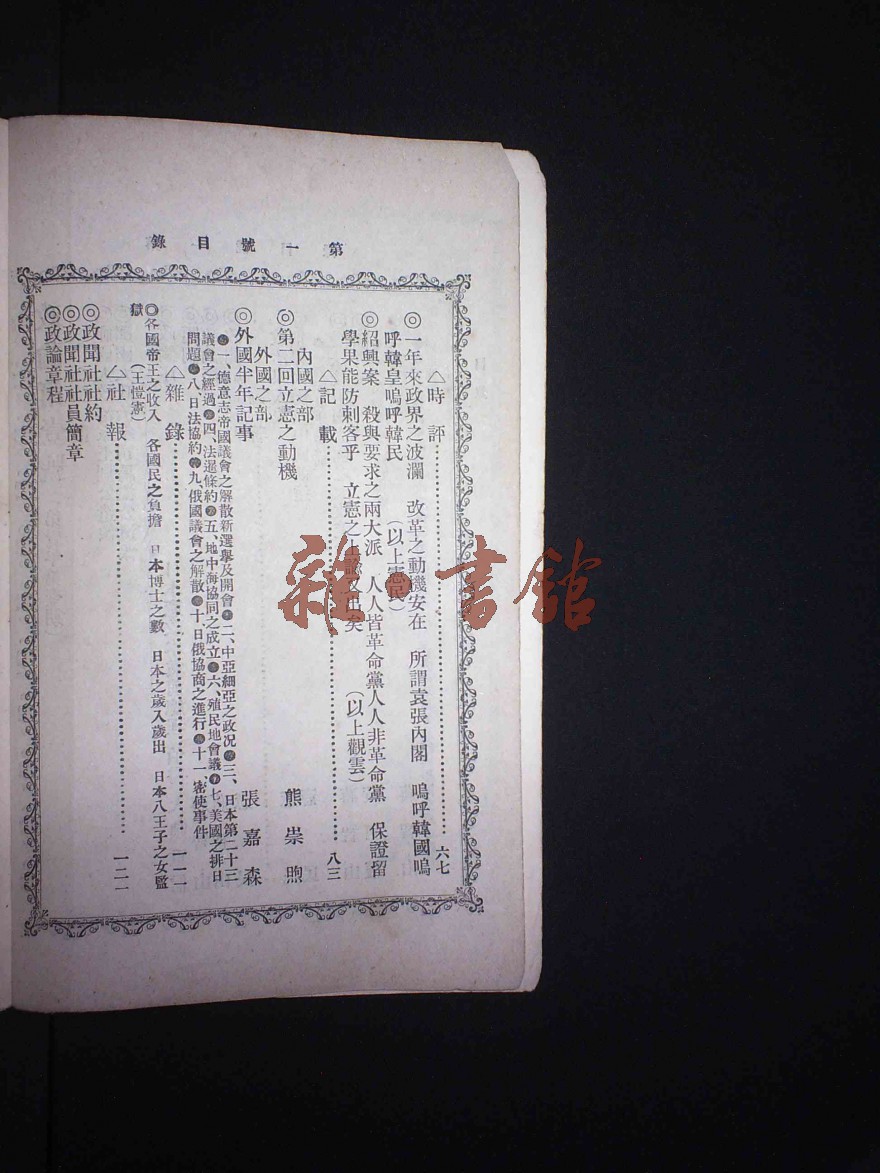 第一號目錄
△時評……六七
◎一年來政界之波瀾 改革之動機安在 所謂袁張內閣 嗚呼韓國嗚
呼韓皇嗚呼韓民 (以上憲民)
◎紹興案 殺與要求之兩大派 人人皆革命黨人人非革命黨 保證留
學果能防刺客乎 立憲之上諭又出矣 (以上觀雲)
△記載……八三
內國之部
◎第二回立憲之動機 熊崇煦
外國之部
◎外國半年記事 張嘉森
一、德意志帝國議會之解散新選擧及開會 二、中亞細亞之政况 三、日本第二十三
議會之經過 四、法暹條約 五、地中海協同之成立 六、殖民地會議 七、美國之排日
問題 八、日法協約 九、俄國議會之解散 十、日俄協商之進行 十一、密使事件
△雜錄……一一一
◎各國帝王之收入 各國民之負擔 日本博士之數 日本之歲入歲出 日本八王子之女監
獄 (王愷憲)
△社報……一二一
◎政聞社社約
◎政聞社社員簡章
◎政論章程
雜書館